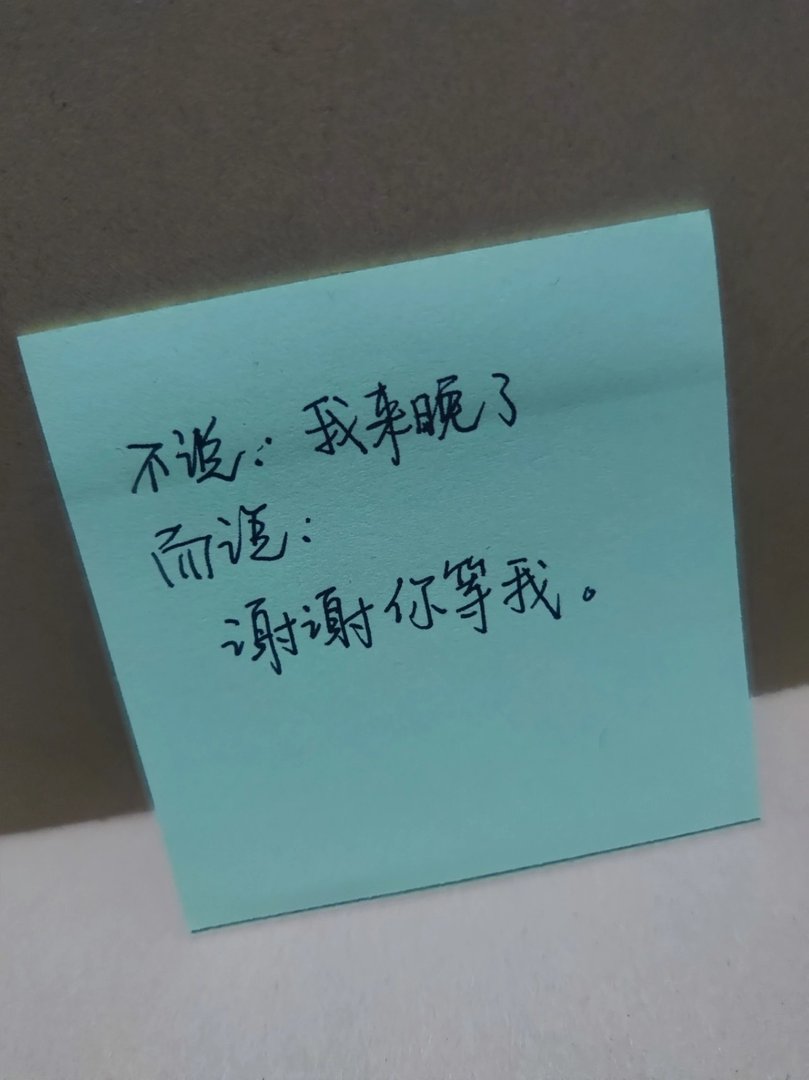 不说：我来晚了
而说：
谢谢你等我。